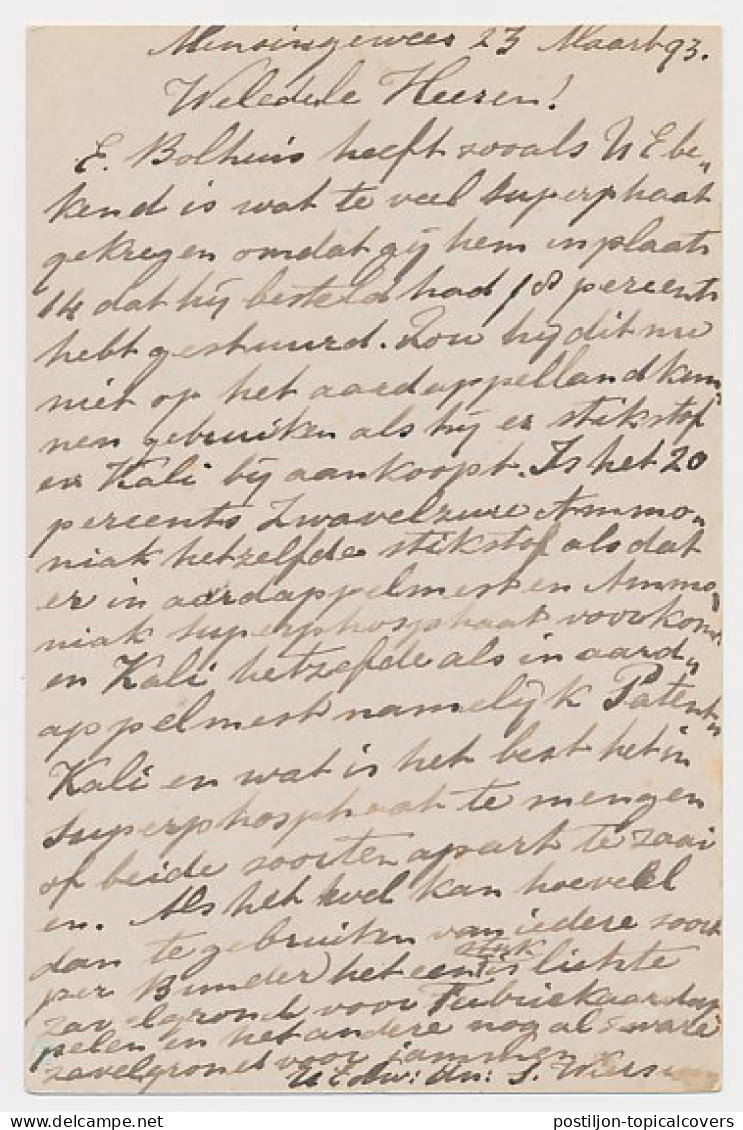 Mensingeweer 23 Maart 93.
Weledele Heeren!
E. Bolhuis heeft zooals U E be„
kend is wat te veel superphaat
gekregen omdat gij hem in plaats
14 dat hij besteld had 18 percents
hebt gestuurd. Zou hij dit nu
niet op het aardappelland kun„
nen gebruiken als hij er stikstof
en Kali bij aankoopt. Is het 20
percents Zwavelzure Ammo„
niak hetzelfde stikstof als dat
er in aardappelmest en Ammo„
niak superphosphaat voorkomt
en Kali hetzefde als in aard„
appelmest namelijk Patent„
Kali en wat is het best het in
superphosphaat te mengen
of beide soorten apart te zaai
en. Als het wel kan hoeveel
dan te gebruiken van iedere soort
per Bunder het een stuk is lichte
zavelgrond voor Fabriekaardap
pelen en het andere nog al zware
zavelgrond voor jammen
UEdw: dn: S. Wiersum
postiljon-topicalcovers